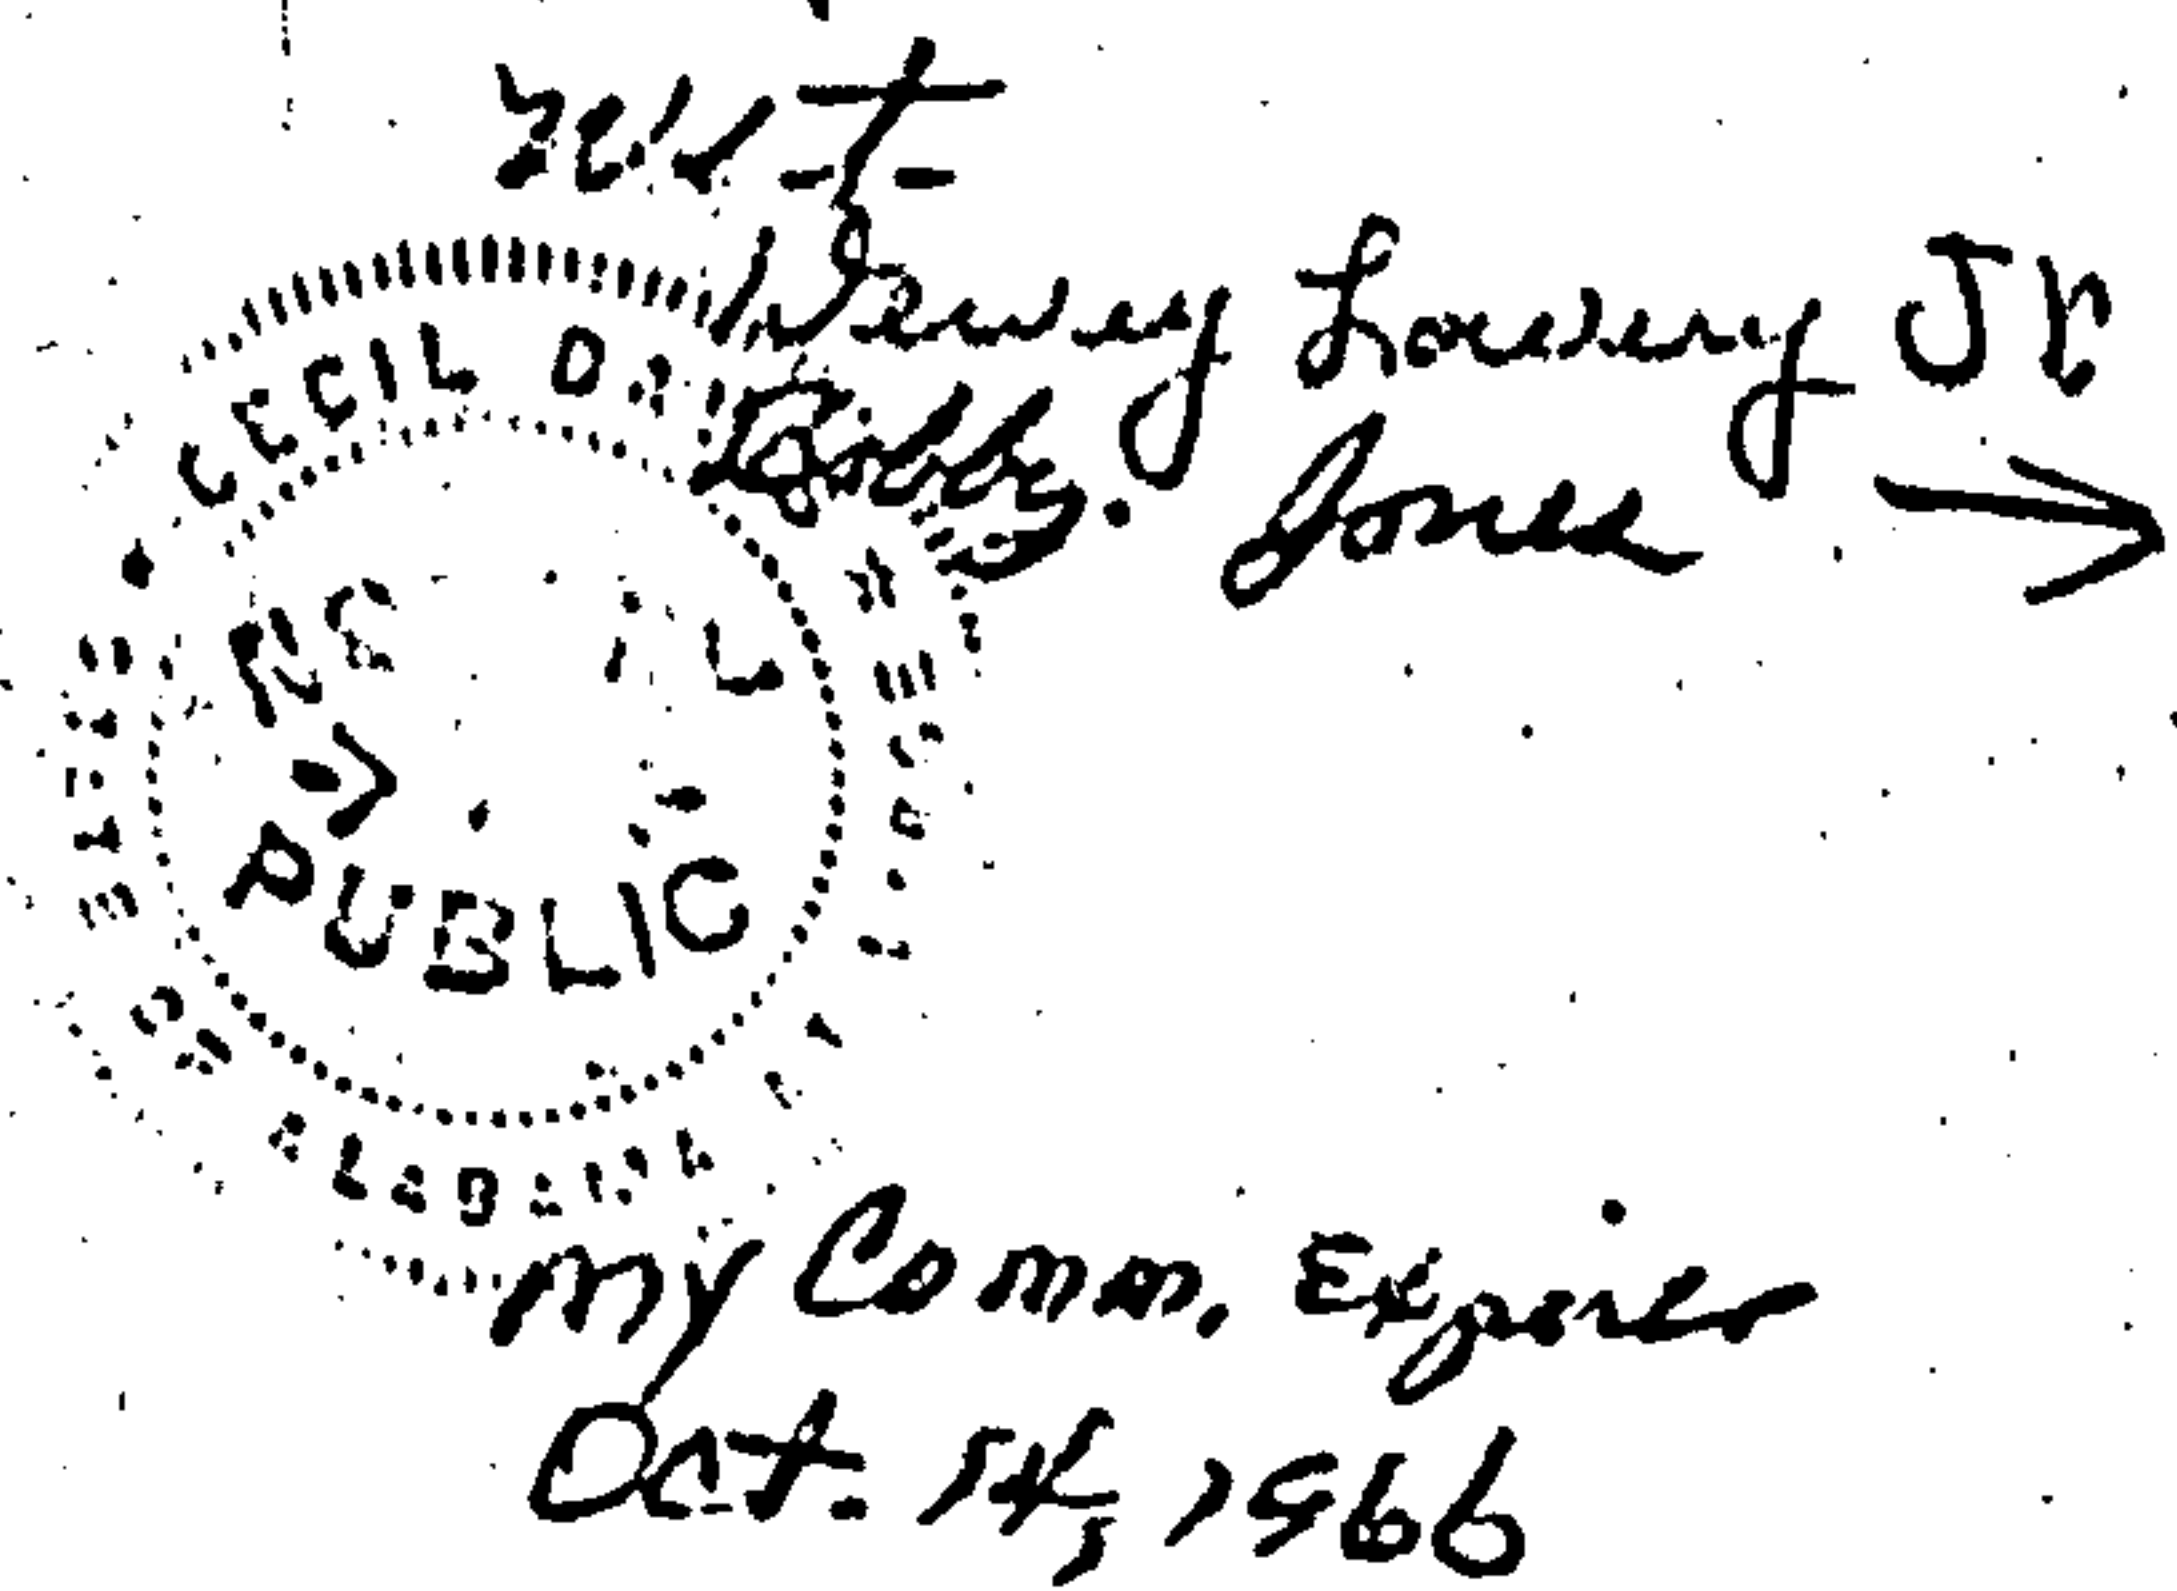 Wit-
Dewey Lowery JR
Bobby. Jones
CECIL D.
PUBLIC
My Comm, Expires
Oct. 14, 1966